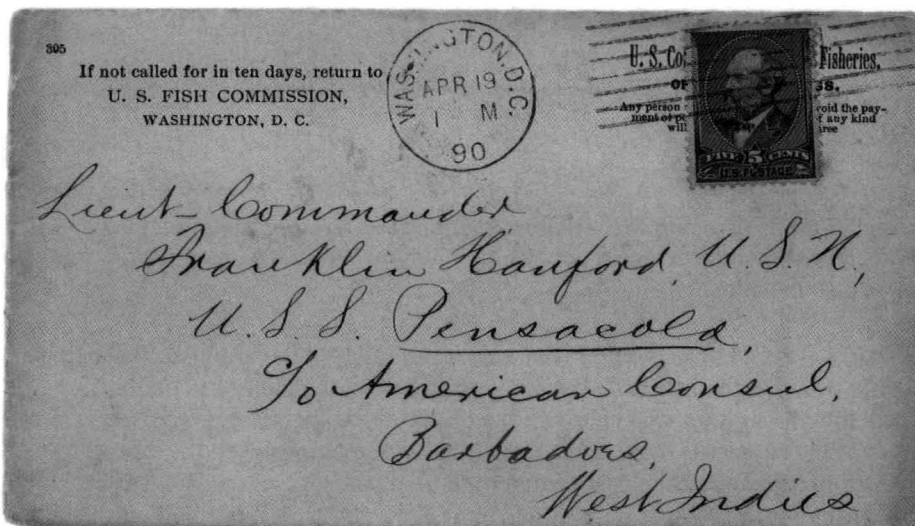 305
If not called for in ten days, return to
U. S. FISH COMMISSION,
WASHINGTON, D. C.
WASHINGTON, D.C.
APR 19
1 M
90
U. S. Fisheries,
Any person
will
of any kind
FIVE 5 CENTS
U.S. POSTAGE
Lieut-Commander
Franklin Hanford, U.S.N.,
U.S.S. Pensacola,
c/o American Consul,
Barbadoes,
West Indies